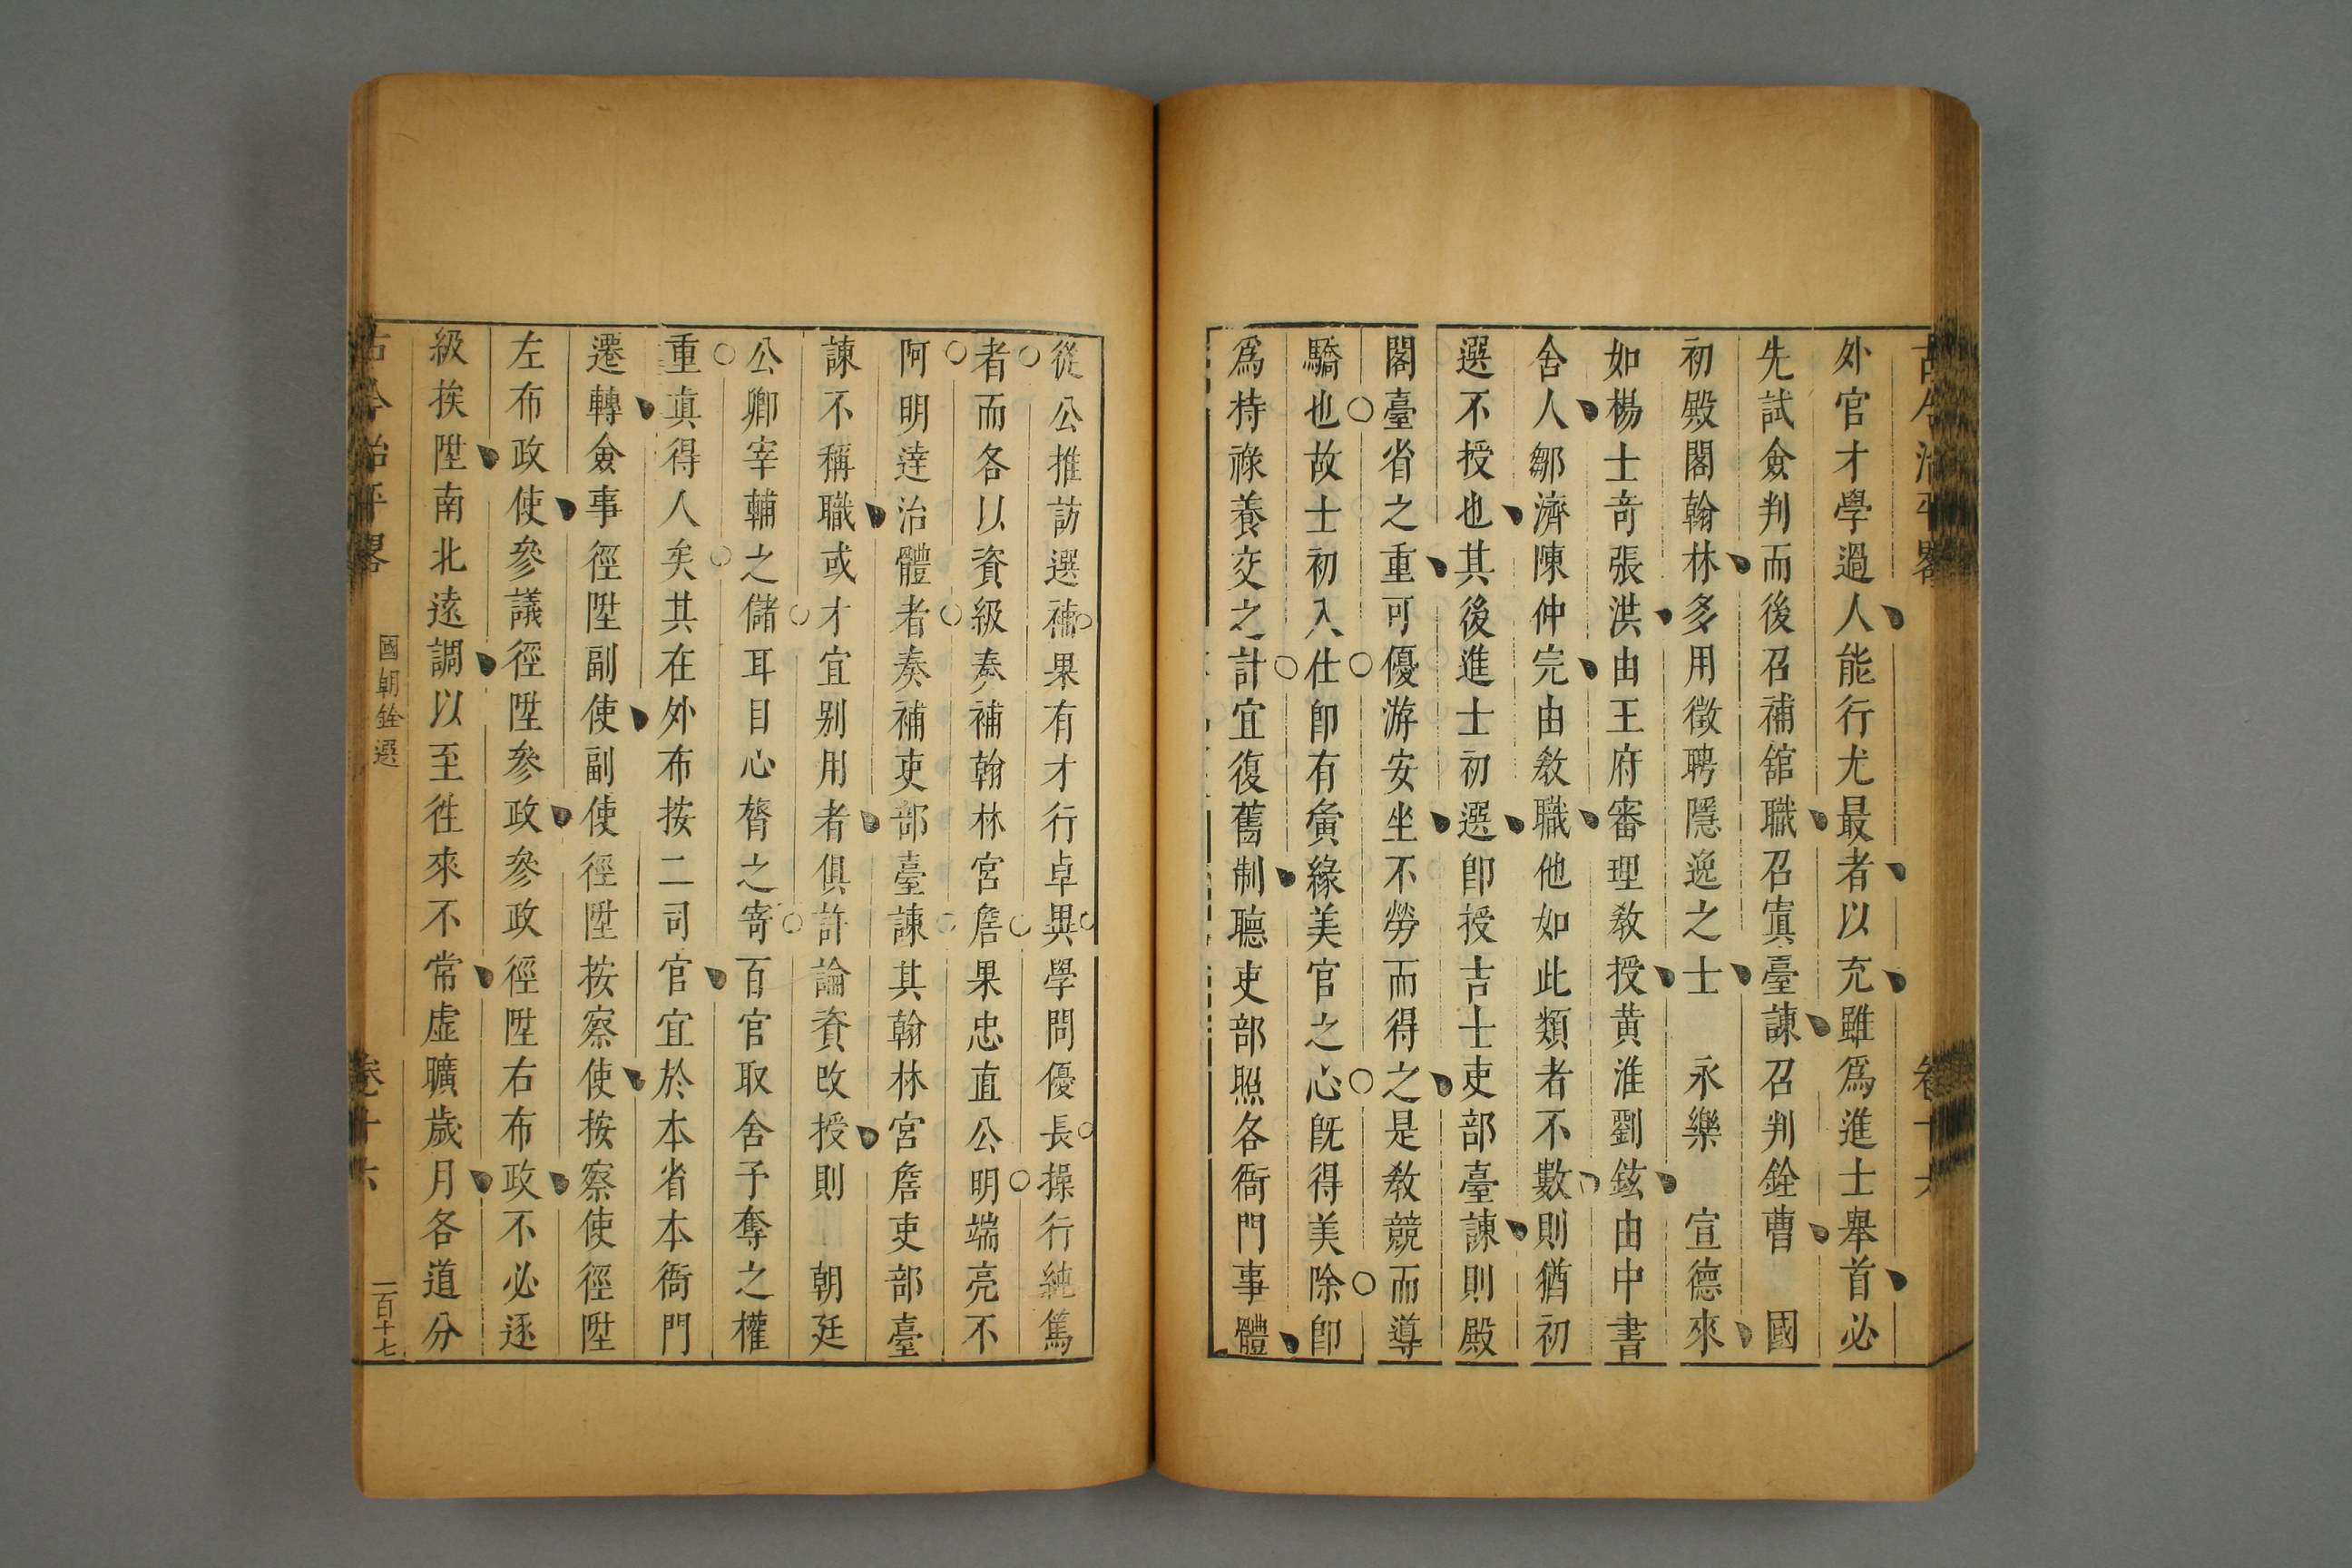 古今治平畧 卷十六
外官才學過人能行尤最者以充雖爲進士舉首必
先試僉判而後召補舘職召寘臺諫召判銓曹 國
初殿閣翰林多用徵聘隱逸之士 永樂 宣德來
如楊士竒張洪由王府審理教授黃淮劉鉉由中書
舍人鄒濟陳仲完由教職他如此類者不數則猶初
選不授也其後進士初選即授吉士吏部臺諫則殿
閣臺省之重可優游安坐不勞而得之是教競而導
驕也故士初入仕即有夤緣美官之心旣得美除即
爲持祿養交之計宜復舊制聽吏部照各衙門事體
從公推訪選補果有才行卓異學問優長操行純篤
者而各以資級奏補翰林宮詹果忠直公明端亮不
阿明達治體者奏補吏部臺諫其翰林宮詹吏部臺
諫不稱職或才宜别用者俱許論資改授則 朝廷
公卿宰輔之儲耳目心膂之寄百官取舍予奪之權
重眞得人矣其在外布按二司官宜於本省本衙門
遷轉僉事徑陞副使副使徑陞按察使按察使徑陞
左布政使參議徑陞參政參政徑陞右布政不必逐
級挨陞南北遠調以至徃來不常虛曠歲月各道分
古今治平畧 國朝銓選 卷十六 一百十七